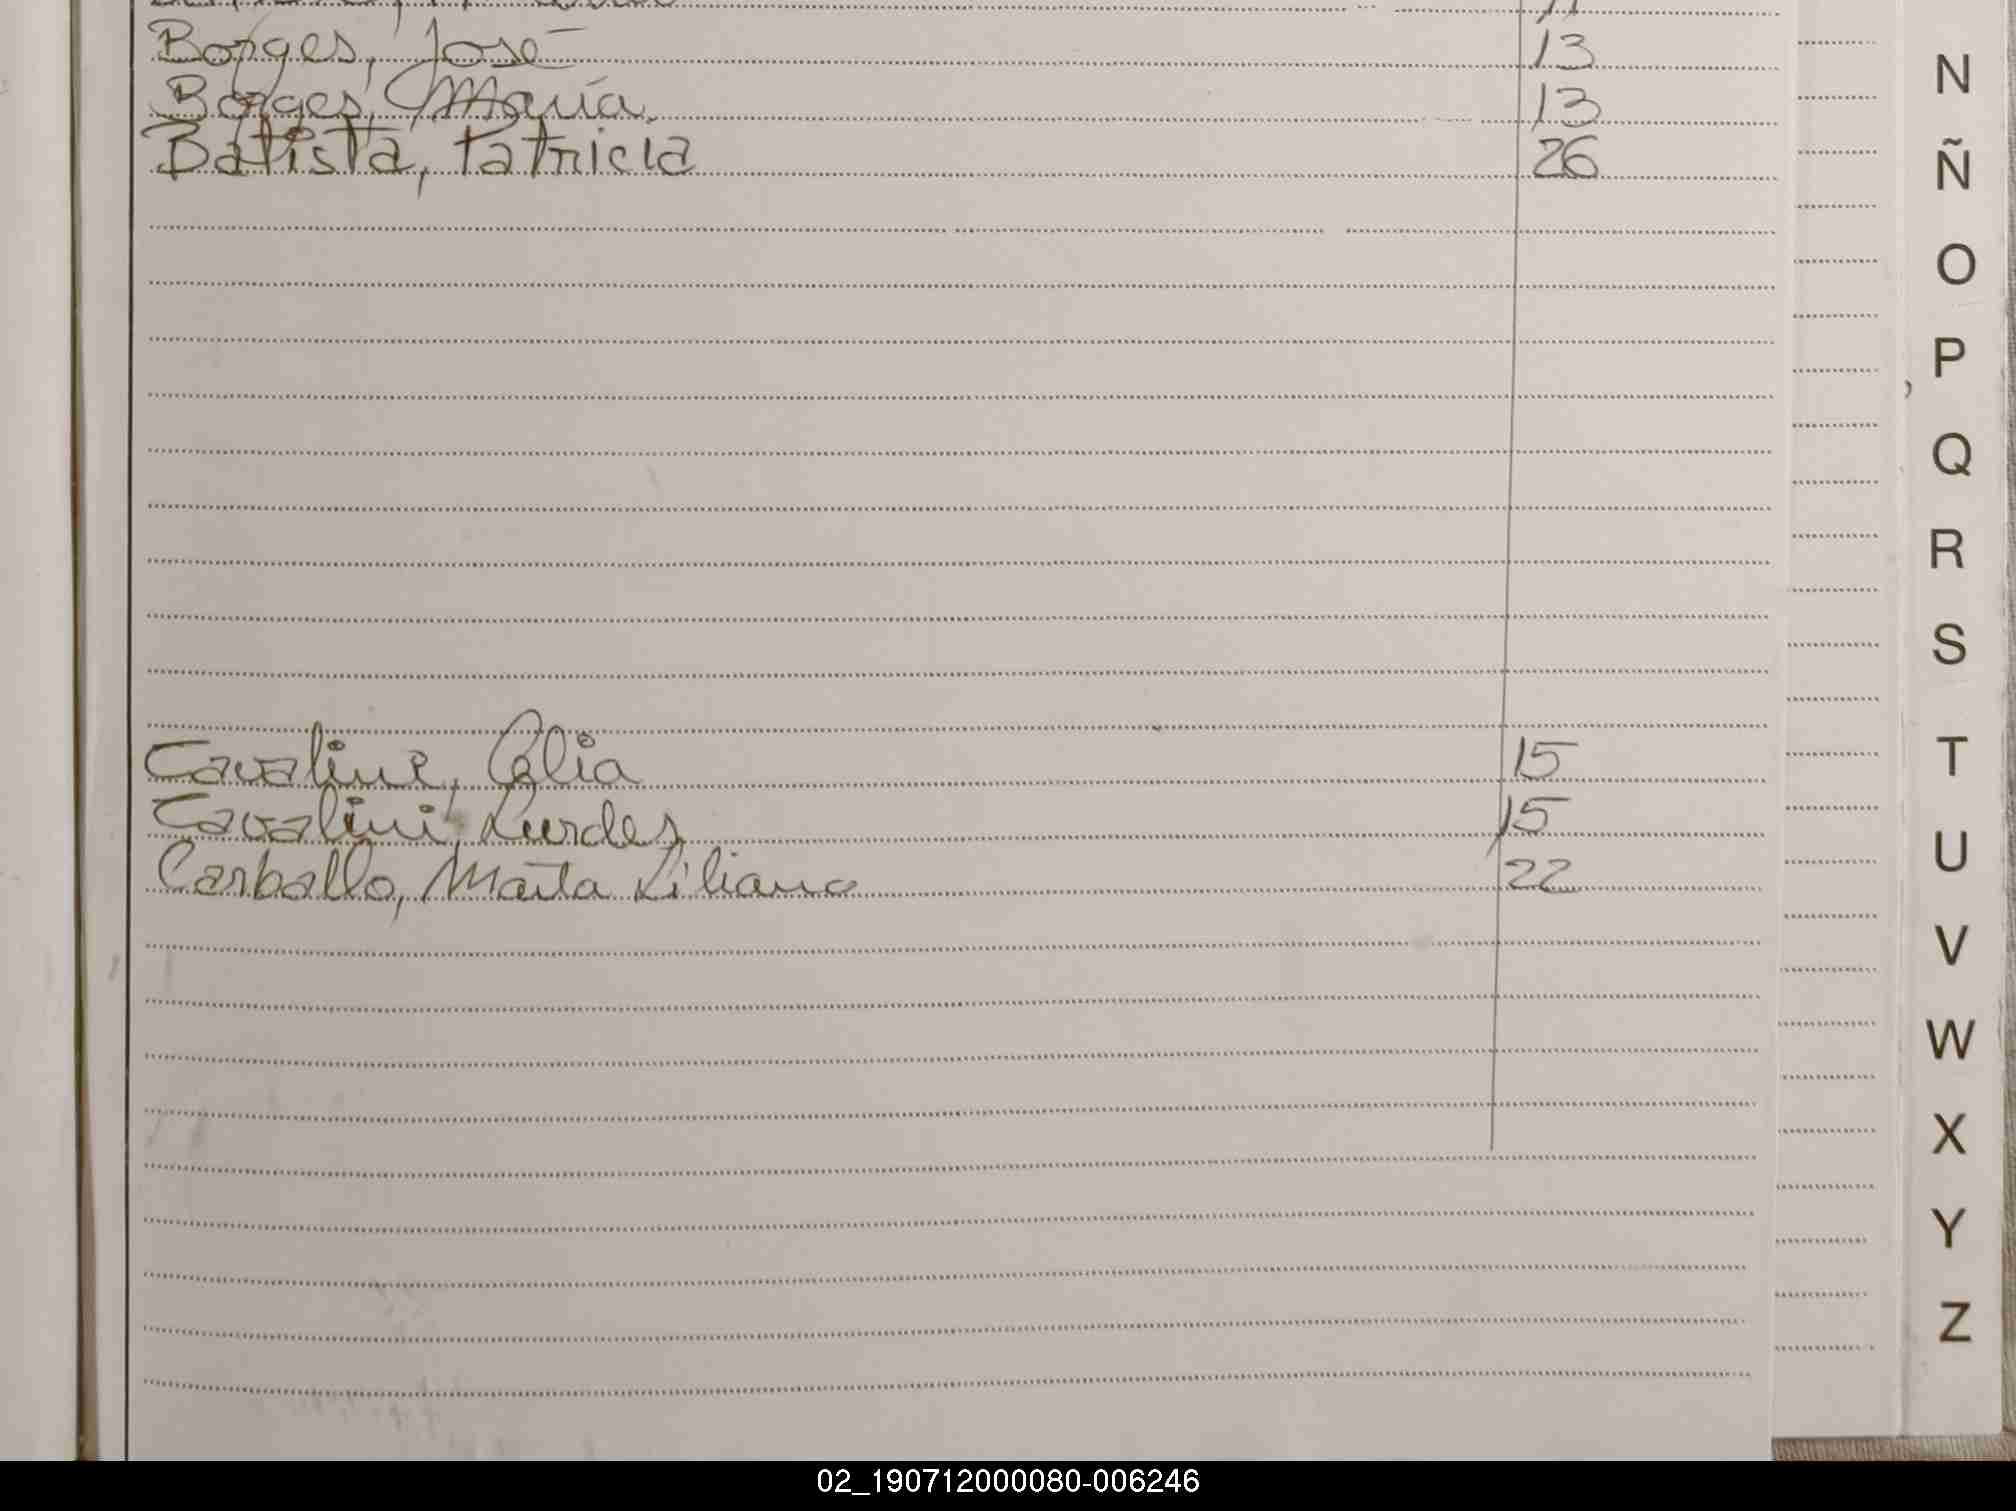 Borges, José 13
Borges, María 13
Batista, Patricia 26
Cavalini, Celia 15
Cavalini, Lurdes 15
Carballo, Marta Liliana 22
N
Ñ
O
P
Q
R
S
T
U
V
W
X
Y
Z
02_190712000080-006246